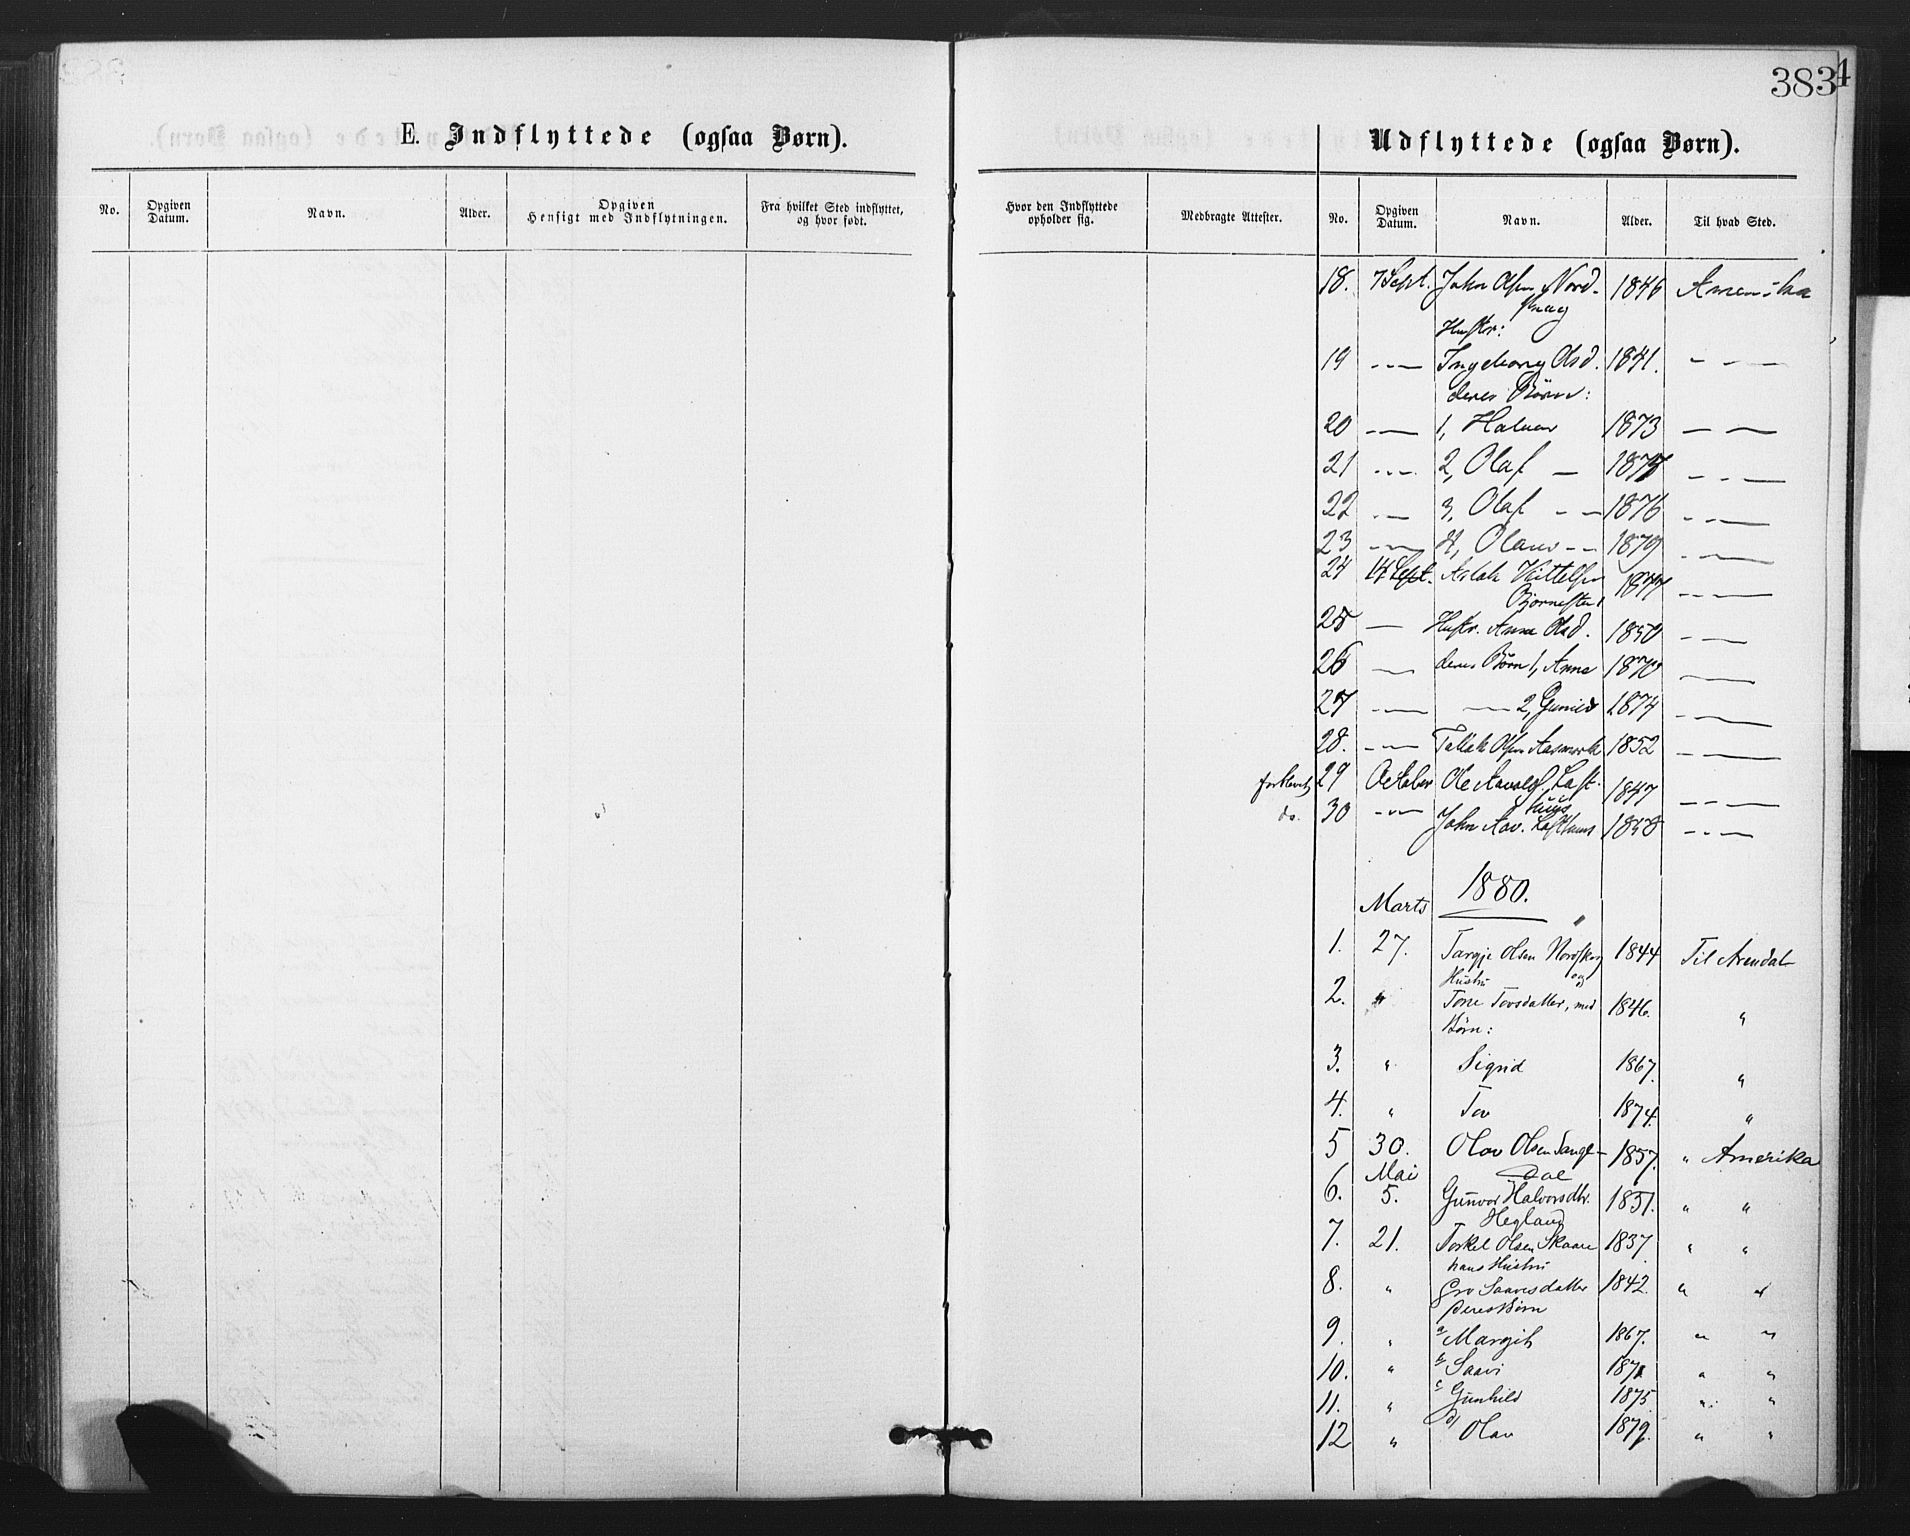 383
E. Indflyttede (ogsaa Børn).
Udflyttede (ogsaa Børn).
No. Opgiven Datum. Navn. Alder. Opgiven Hensigt med Indflytningen. Fra hvilket Sted indflyttet, og hvor født.
Hvor den Indflyttede opholder sig. Medbragte Attester. No. Opgiven Datum. Navn. Alder. Til hvad Sted.
18. 7 Sept. John Olsen Nord- 1846 Amerika
skog
Hustr:
19 — Ingeborg Olsd. 1841. — —
deres Børn:
20 — 1, Halvor 1873 — —
21 — 2, Olaf — 1875 — —
22 — 3, Olaf — — 1876 — —
23 — 4, Olaus — — 1879 — —
24 14 Sept. Aslak Kittelsen 1844 — —
25 — Hustr. Anne Olsd. 1850 — —
26 — deres Børn 1, Anne 1870 — —
27 — — 2, Gunild 1874 — —
28. — Tallak Olsen Aasmork 1852 — —
29 October Ole Aavalds. Laft- 1847 — —
huus
do. 30 — John Aav. Lafthuus 1858 — —
1880.
Marts
1. 27. Targje Olsen Nordskog 1844 Til Arendal
og
Hustru
2. " Tone Tovsdatter, med 1846. "
Børn:
3. " Sigrid 1867. "
4. " Tov 1874. "
5 30. Olav Olsen Tangl- 1857. " Amerika
Dal
Mai
6. 5. Gunvor Halvorsdtr. 1851. " "
Hegland
7. 21. Torkel Olsen Skaare 1837 " "
hans Hustru
8. " Gro Saavesdatter 1842. " "
Deres Børn
9. " a/ Margit 1867. " "
10. " b/ Saavi 1871 " "
11. " c/ Gunhild 1875. " "
12 " d/ Olav 1879. " "